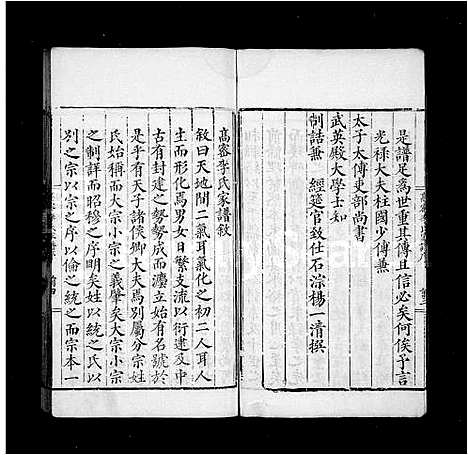 是譜足爲世重其傳且信必矣何俟予言
光祿大夫柱國少傅兼
太子太傅吏部尚書
武英殿大學士知
制誥兼 經筵官致仕石淙楊一清撰
高密李氏家譜敘
敘曰天地間二氣耳氣化之初二人耳人
生而形化焉男女日繁支流以衍逮及中
古有封建之勢勢成而灋立始有名號於
是乎有天子諸侯卿大夫焉别屬分宗姓
氏始稱而大宗小宗之義肇矣大宗小宗
之制詳而昭穆之序明矣姓以統之氏以
别之宗以宗之序以倫之統之而宗本一